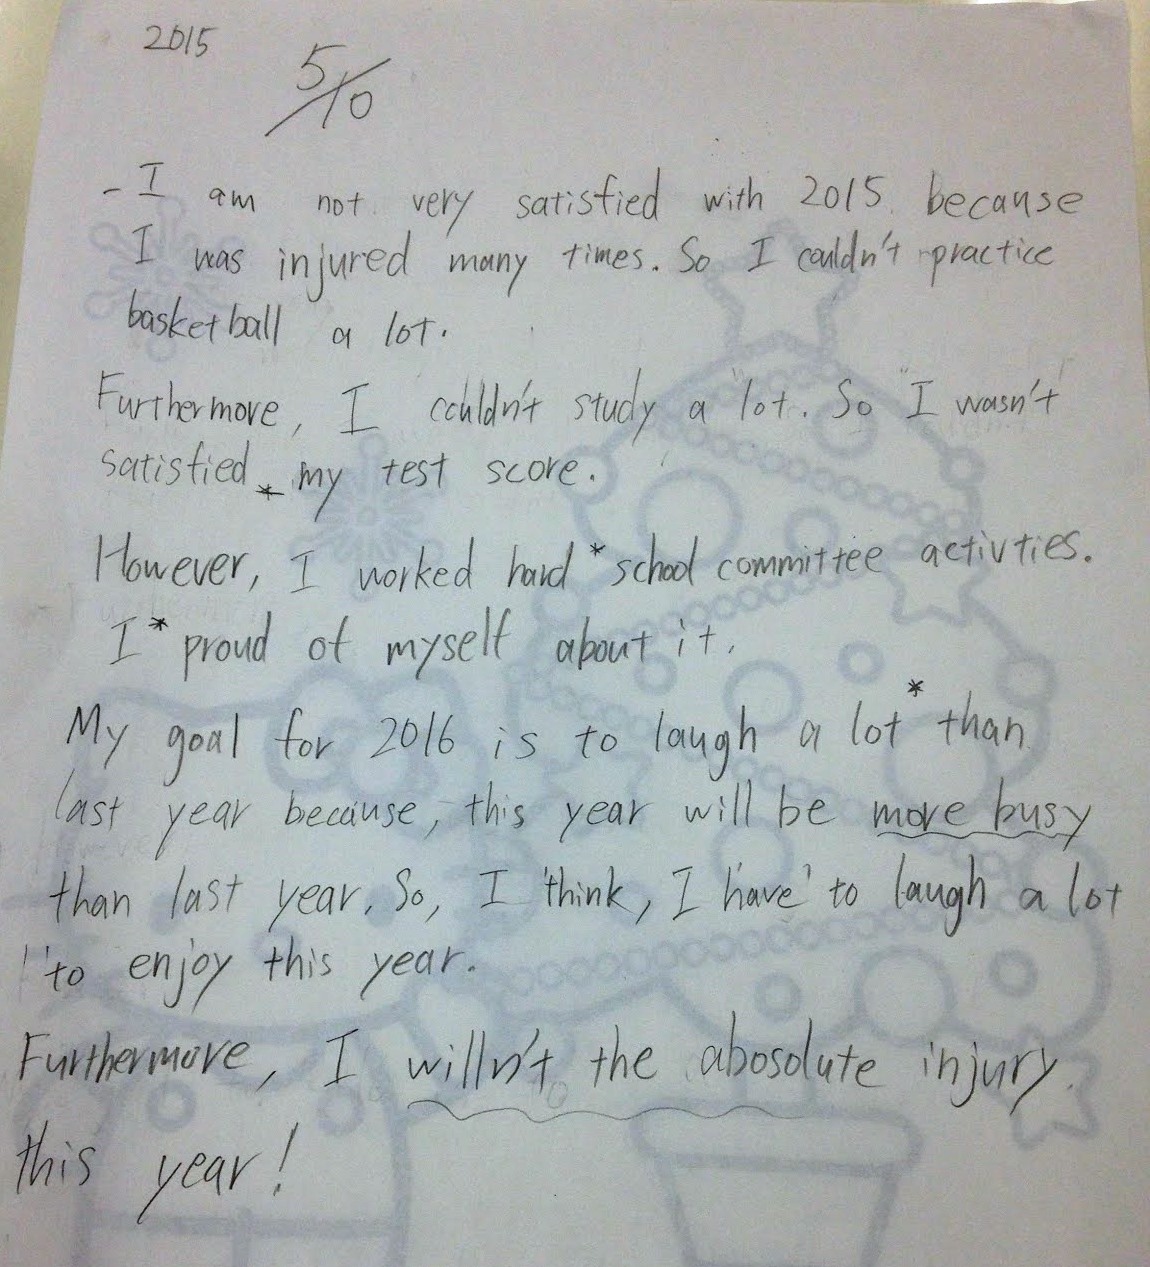 2015
5/10
- I am not very satisfied with 2015 because
I was injured many times. So I couldn't practice
basketball a lot.
Furthermore, I couldn't study a lot. So I wasn't
satisfied * my test score.
However, I worked hard * school committee activties.
I * proud of myself about it.
My goal for 2016 is to laugh a lot * than
last year because, this year will be more busy
than last year. So, I think, I have to laugh a lot
to enjoy this year.
Furthermore, I willn't the abosolute injury
this year!